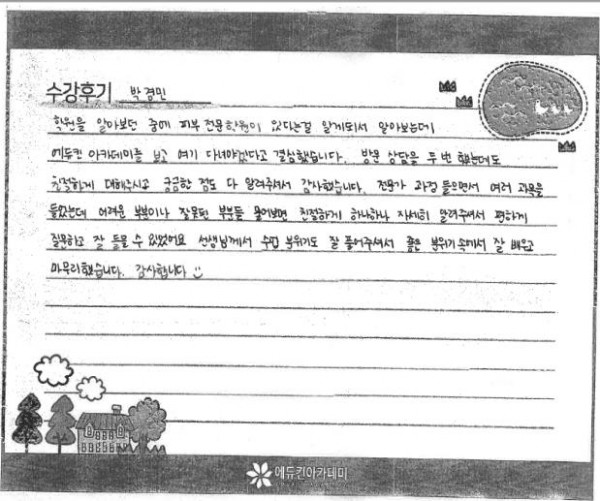 수강후기 박경민
학원을 알아보던 중에 피부전문학원이 있다는걸 알게되서 알아보는데
에듀킨 아카데미를 보고 여기 다녀야겠다고 결심했습니다. 방문 상담을 두 번 했는데도
친절하게 대해주시고 궁금한 점도 다 알려주셔서 감사했습니다. 전문가 과정 들으면서 여러 과목을
들었는데 어려운 부분이나 잘못된 부분들 물어보면 친절하게 하나하나 자세히 알려주셔서 편하게
질문하고 잘 들을 수 있었어요 선생님께서 수업 분위기도 잘 풀어주셔서 좋은 분위기속에서 잘 배우고
마무리했습니다. 감사합니다
에듀킨아카데미